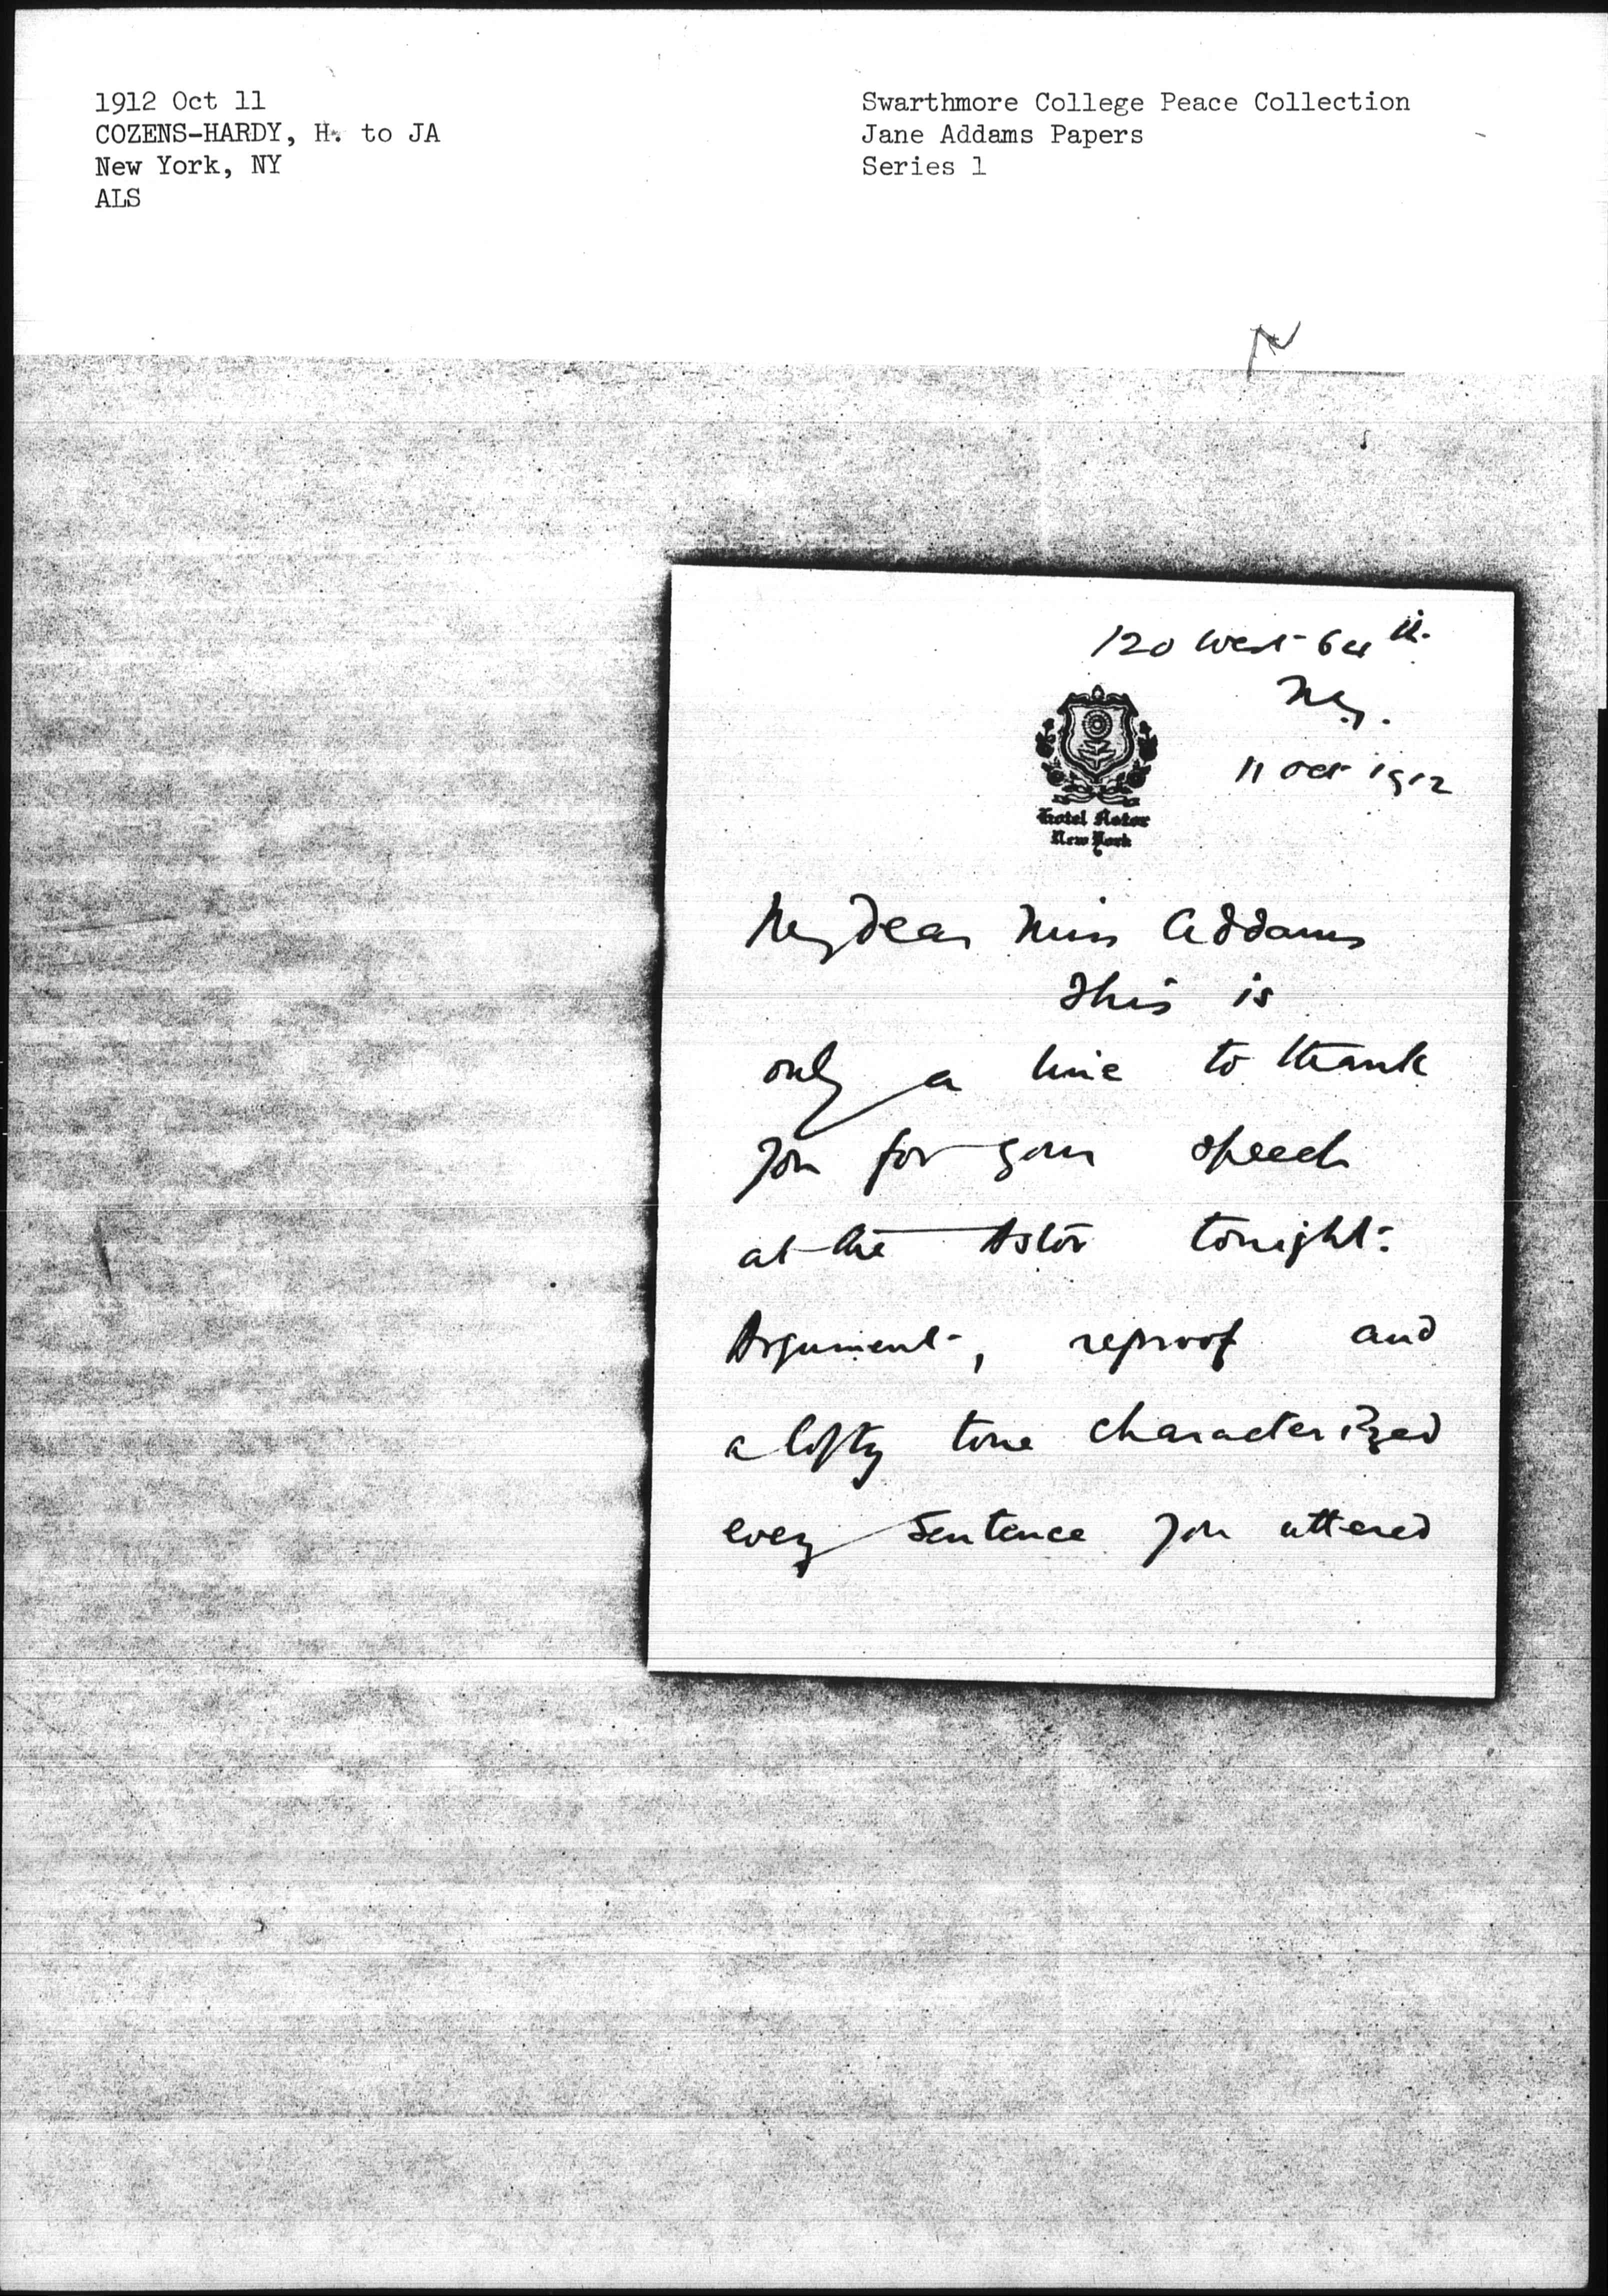 1912 Oct 11
COZENS-HARDY, H. to JA
New York, NY
ALS
Swarthmore College Peace Collection
Jane Addams Papers
Series 1
120 West 64th.
NY.
11 Oct 1912
Hotel Astor
New York
My dear Miss Addams
This is
only a line to thank
you for your speech
at the Astor tonight.
Argument, reproof and
a lofty tone characterized
every sentence you uttered